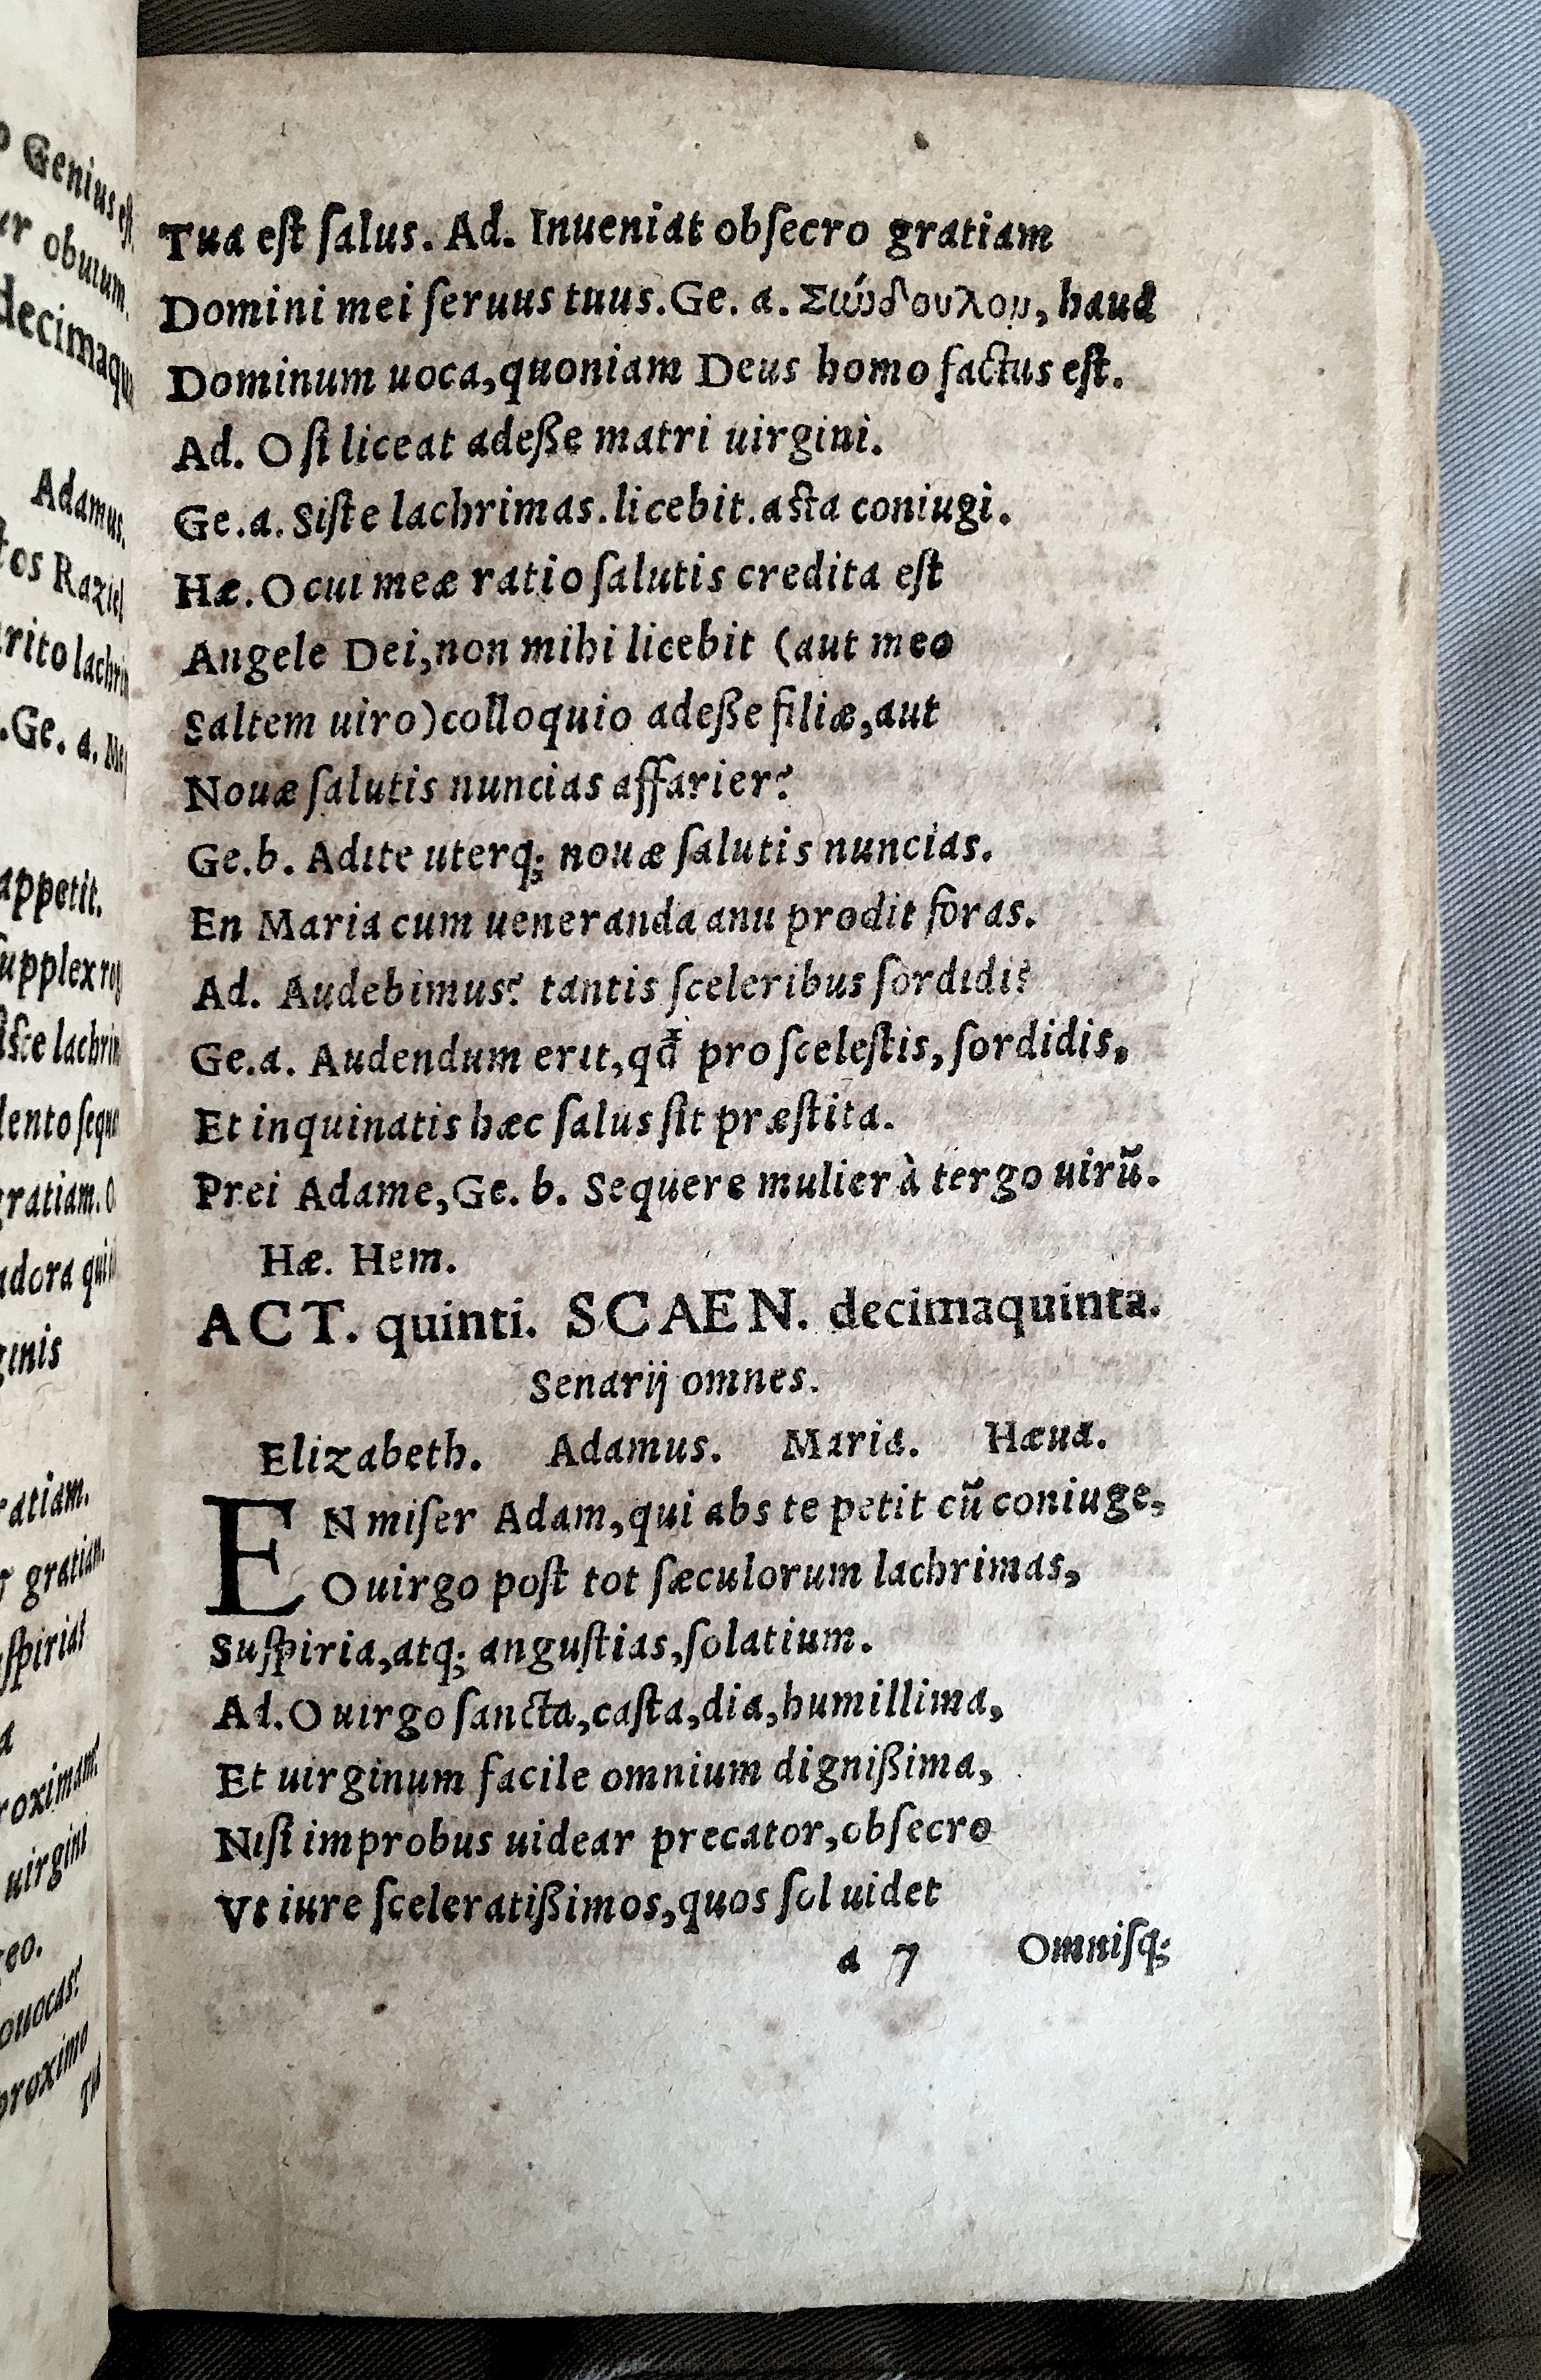 o Genius est
er obuium.
decimaqu
Adamus.
tos Raziel
rito lachri
.Ge. a. Ne
appetit.
supplex rog
iste lachrim
lento sequ
gratiam. O
adora qui
ginis
ratiam.
r gratiam.
spiriat
a
roximam:
uirgini
reo.
ouocas?
proximo
Tua
Tua est salus. Ad. Inueniat obsecro gratiam
Domini mei seruus tuus. Ge. a. Σιώδουλον, haud
Dominum uoca, quoniam Deus homo factus est.
Ad. O si liceat adeße matri uirgini.
Ge.a. Siste lachrimas. licebit. asta coniugi.
Hæ. O cui meæ ratio salutis credita est
Angele Dei, non mihi licebit (aut meo
Saltem uiro) colloquio adeße filiæ, aut
Nouæ salutis nuncias affarier?
Ge.b. Adite uterq; nouæ salutis nuncias.
En Maria cum ueneranda anu prodit foras.
Ad. Audebimus? tantis sceleribus sordidi?
Ge.a. Audendum erit, qđ pro scelestis, sordidis,
Et inquinatis hæc salus sit præstita.
Prei Adame, Ge. b. Sequere mulier à tergo uirũ.
Hæ. Hem.
ACT. quinti. SCAEN. decimaquinta.
Senarij omnes.
Elizabeth. Adamus. Maria. Hæua.
EN miser Adam, qui abs te petit cũ coniuge,
O uirgo post tot sæculorum lachrimas,
Suspiria, atq; angustias, solatium.
Ad. O uirgo sancta, casta, dia, humillima,
Et uirginum facile omnium dignißima,
Nisi improbus uidear precator, obsecro
Vt iure sceleratißimos, quos sol uidet
a 7 Omnisq;